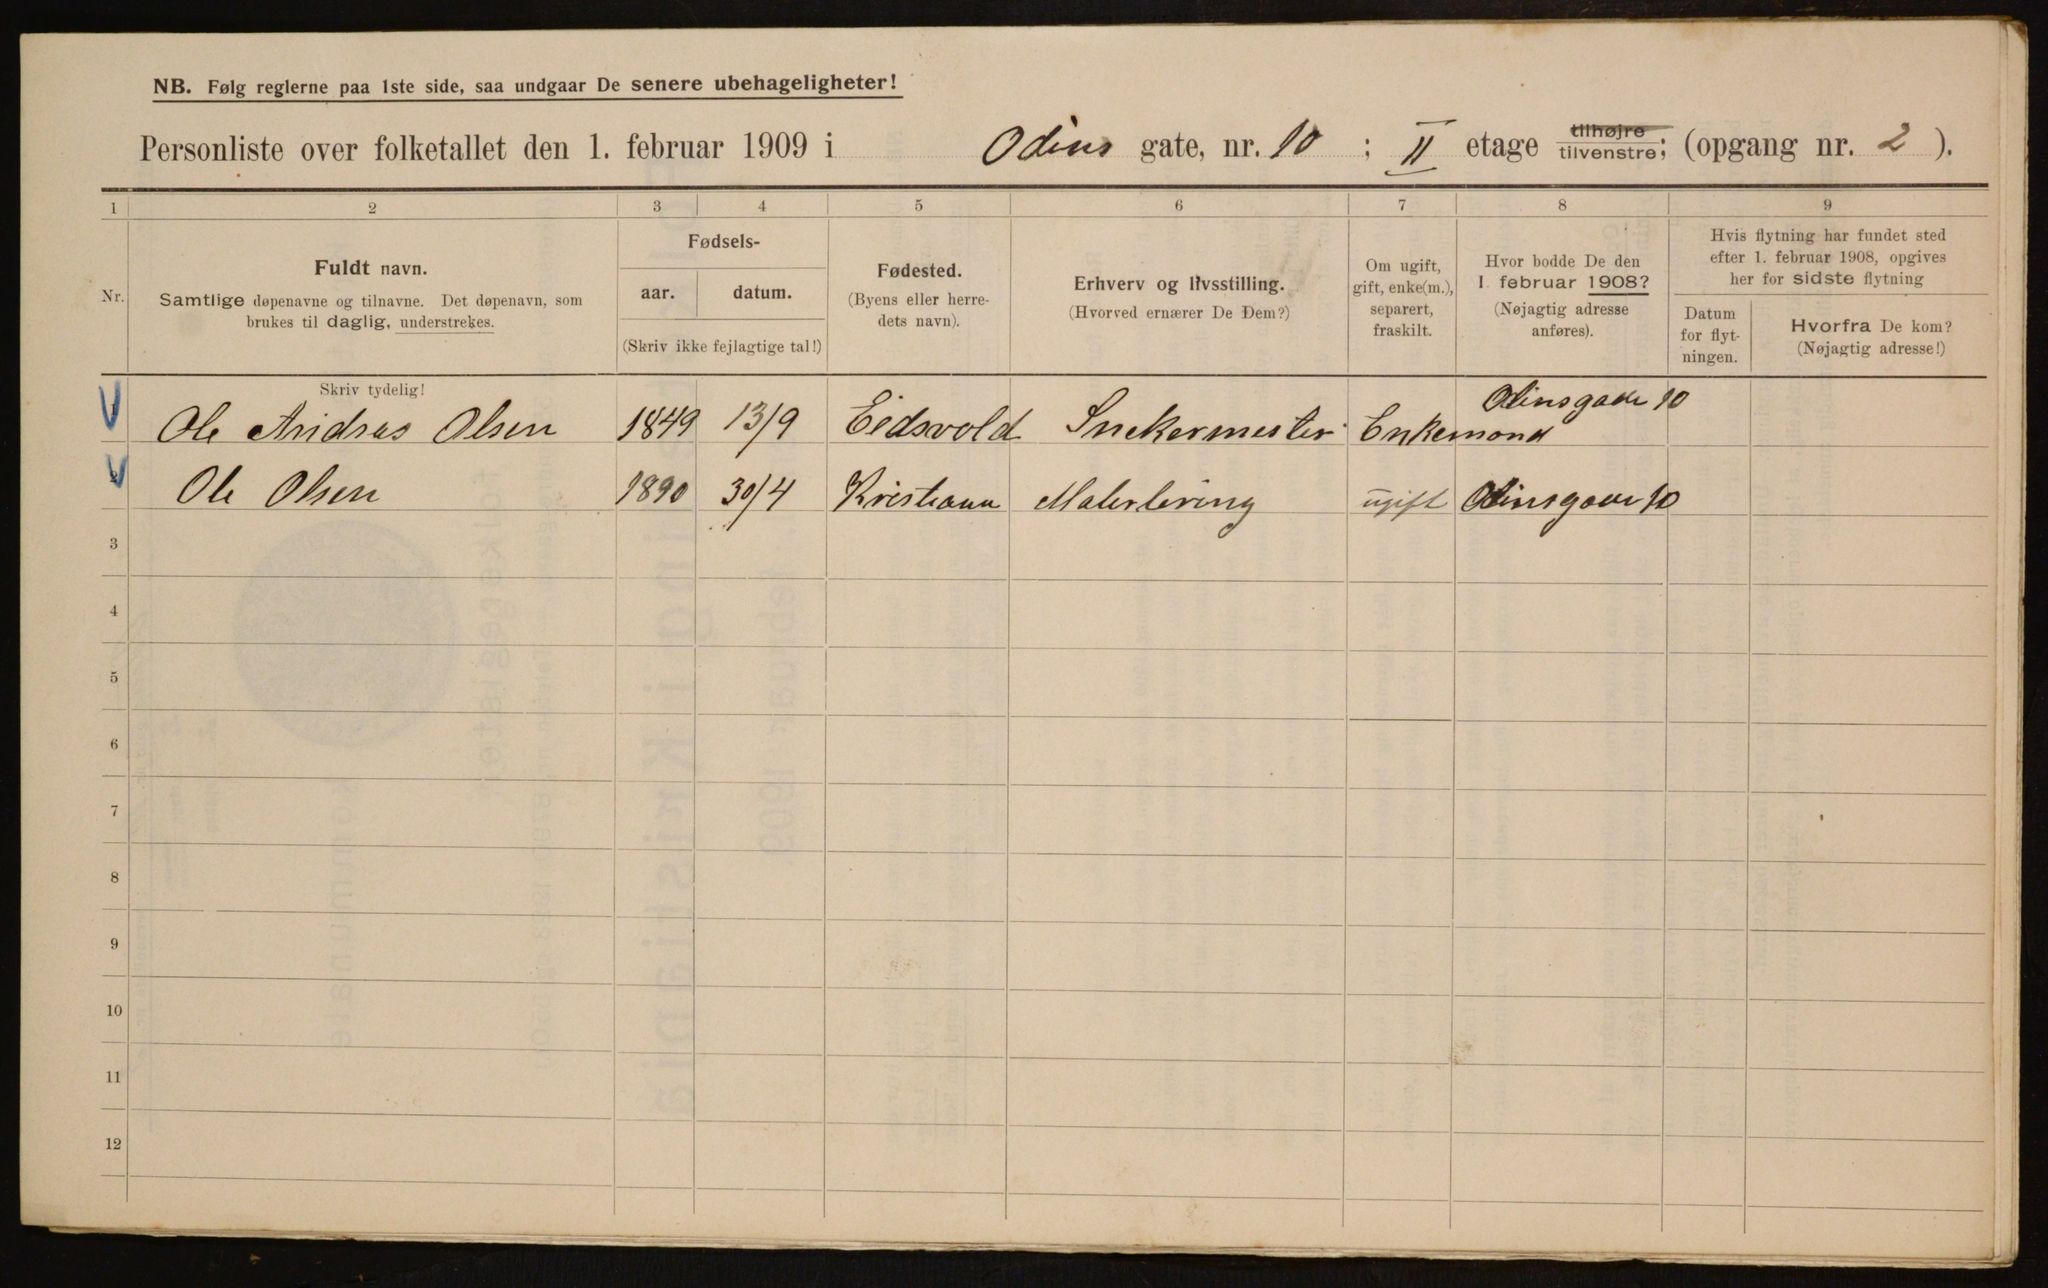 NB. Følg reglerne paa 1ste side, saa undgaar De senere ubehageligheter!
Personliste over folketallet den 1. februar 1909 i Odins gate, nr. 10 ; II etage tilhøjre tilvenstre; (opgang nr. 2 ).
1 2 3 4 5 6 7 8 9
Nr.
Fuldt navn.
Samtlige døpenavne og tilnavne. Det døpenavn, som
brukes til daglig, understrekes.
Skriv tydelig!
Fødsels-
aar. datum.
(Skriv ikke fejlagtige tal!)
Fødested.
(Byens eller herre-
dets navn).
Erhverv og livsstilling.
(Hvorved ernærer De Dem?)
Om ugift,
gift, enke(m.),
separert,
fraskilt.
Hvor bodde De den
1 februar 1908?
(Nøjagtig adresse
anføres).
Hvis flytning har fundet sted
efter 1. februar 1908, opgives
her for sidste flytning
Datum
for flyt-
ningen.
Hvorfra De kom?
(Nøjagtig adresse!)
Ole Andreas Olsen 1849 13/9 Eidsvold Snekermester Enkemand Odinsgade 10
Ole Olsen 1890 30/4 Kristiania Malerlæring ugift Odinsgade 10
3
4
5
6
7
8
9
10
11
12